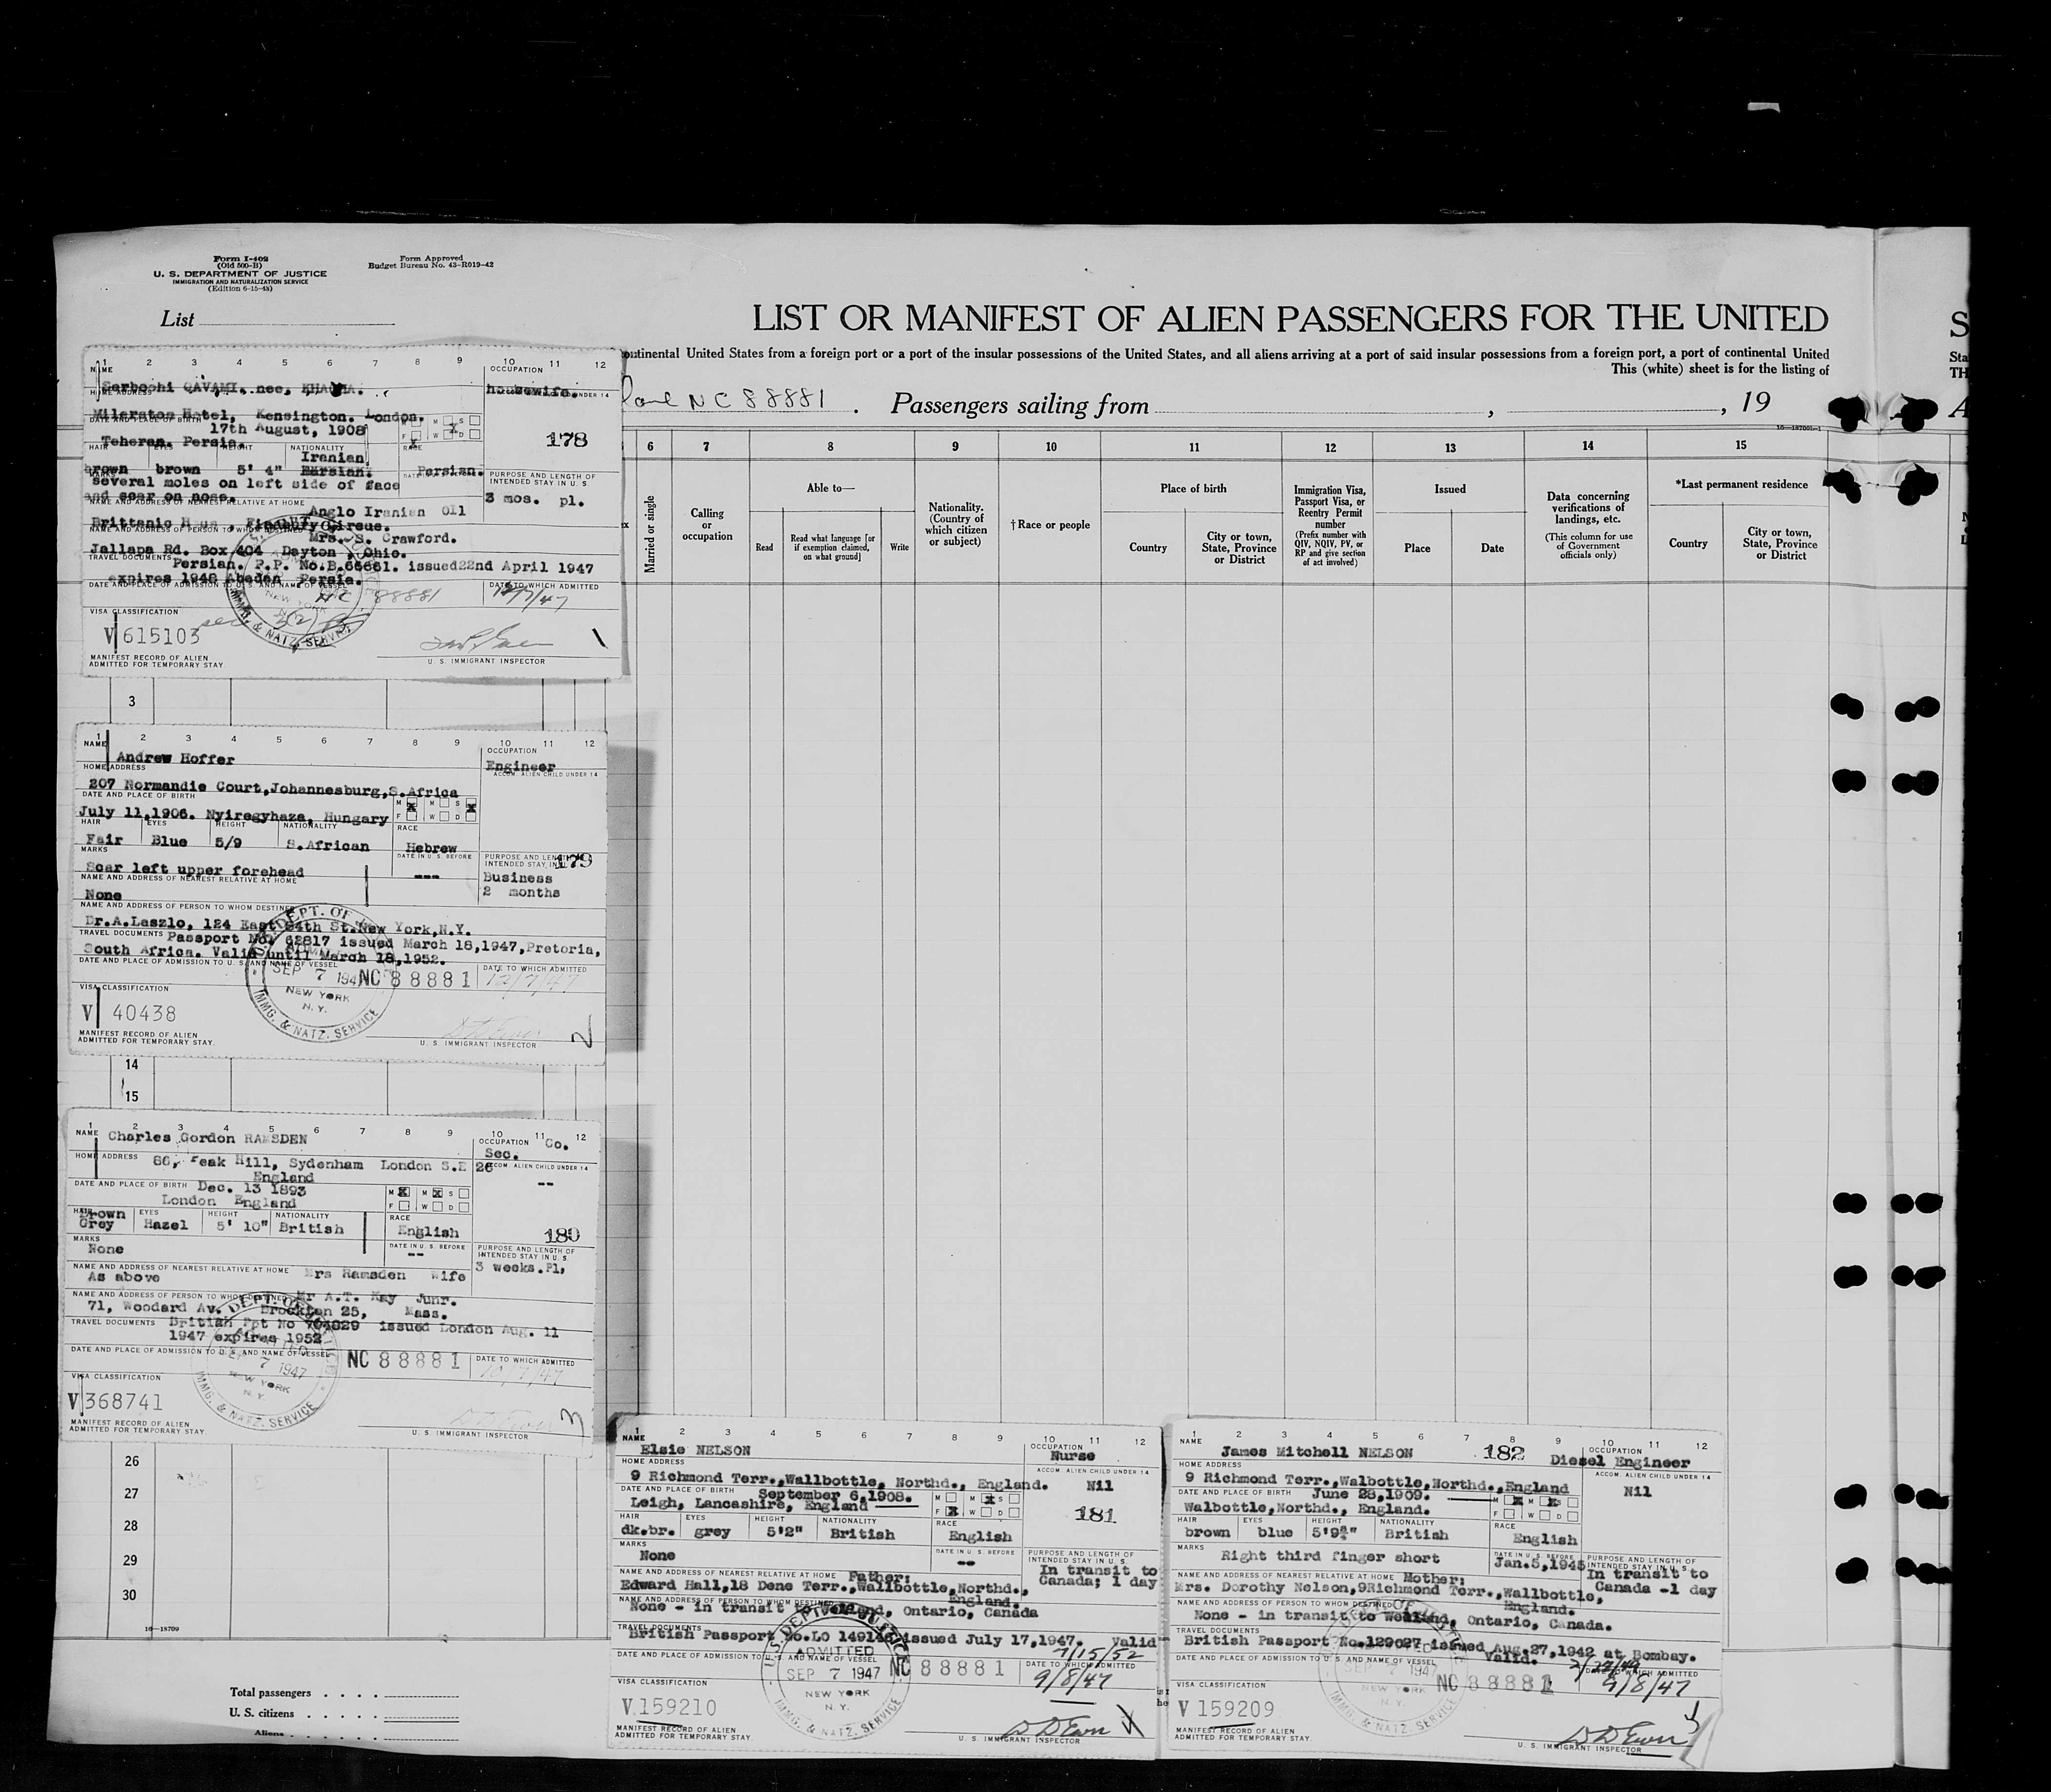 Form I-402
(Old 500-B)
U. S. DEPARTMENT OF JUSTICE
IMMIGRATION AND NATURALIZATION SERVICE
(Edition 6-15-43)
Form Approved
Budget Bureau No. 43-R019-42
List
LIST OR MANIFEST OF ALIEN PASSENGERS FOR THE UNITED
continental United States from a foreign port or a port of the insular possessions of the United States, and all aliens arriving at a port of said insular possessions from a foreign port, a port of continental United
This (white) sheet is for the listing of
NC 88881 . Passengers sailing from , , 19
16—18700b-1
6 7 8 9 10 11 12 13 14 15
Married or single
Calling or occupation
Able to—
Read
Read what language [or if exemption claimed, on what ground]
Write
Nationality. (Country of which citizen or subject)
†Race or people
Place of birth
Country
City or town, State, Province or District
Immigration Visa, Passport Visa, or Reentry Permit number
(Prefix number with QIV, NQIV, PV, or RP and give section of act involved)
Issued
Place
Date
Data concerning verifications of landings, etc.
(This column for use of Government officials only)
*Last permanent residence
Country
City or town, State, Province or District
1 2 3 4 5 6 7 8 9 10 11 12
NAME
OCCUPATION
QAVAMI. nee,
housewife.
HOME ADDRESS
Hotel, Kensington. London.
DATE AND PLACE OF BIRTH
17th August, 1908
Teheran. Persia.
178
HAIR EYES HEIGHT NATIONALITY RACE
Iranian
brown brown 5' 4" Persian. Persian.
MARKS
several moles on left side of face
and scar on nose.
PURPOSE AND LENGTH OF INTENDED STAY IN U. S.
3 mos. pl.
NAME AND ADDRESS OF NEAREST RELATIVE AT HOME
Anglo Iranian Oil
Brittanic Finsbury Circus.
NAME AND ADDRESS OF PERSON TO WHOM DESTINED
Mrs. S. Crawford.
Jallapa Rd. Box 404 Dayton Ohio.
TRAVEL DOCUMENTS
Persian. P.P. No.B.66661. issued 22nd April 1947
expires 1948 Abadan Persia.
DATE AND PLACE OF ADMISSION TO U. S. AND NAME OF VESSEL
NC 88881
DATE TO WHICH ADMITTED
12/7/47
VISA CLASSIFICATION
V 615103
NEW YORK
IMMG. & NATZ. SERVICE
MANIFEST RECORD OF ALIEN
ADMITTED FOR TEMPORARY STAY.
U. S. IMMIGRANT INSPECTOR
3
1 2 3 4 5 6 7 8 9 10 11 12
NAME
Andrew Hoffer
OCCUPATION
Engineer
HOME ADDRESS
ACCOM. ALIEN CHILD UNDER 14
207 Normandie Court,Johannesburg,S.Africa
DATE AND PLACE OF BIRTH
M X M S X
F W D
July 11,1906. Nyiregyhaza, Hungary
HAIR EYES HEIGHT NATIONALITY RACE
Fair Blue 5/9 S.African Hebrew
MARKS
DATE IN U. S. BEFORE
PURPOSE AND LENGTH OF INTENDED STAY IN U. S.
179
Scar left upper forehead --- Business
2 months
NAME AND ADDRESS OF NEAREST RELATIVE AT HOME
None
NAME AND ADDRESS OF PERSON TO WHOM DESTINED
Dr.A.Laszlo, 124 East 84th St.New York,N.Y.
TRAVEL DOCUMENTS
Passport No. 62817 issued March 18,1947,Pretoria,
South Africa. Valid until March 18,1952.
DATE AND PLACE OF ADMISSION TO U. S. AND NAME OF VESSEL
SEP 7 1947 NC 88881
DATE TO WHICH ADMITTED
12/7/47
VISA CLASSIFICATION
V 40438
NEW YORK
N. Y.
DEPT. OF
IMMG. & NATZ. SERVICE
MANIFEST RECORD OF ALIEN
ADMITTED FOR TEMPORARY STAY.
U. S. IMMIGRANT INSPECTOR
2
14
15
1 2 3 4 5 6 7 8 9 10 11 12
NAME
Charles Gordon RAMSDEN
OCCUPATION
Co. Sec.
HOME ADDRESS
86, Peak Hill, Sydenham London S.E 26
ACCOM. ALIEN CHILD UNDER 14
England
--
DATE AND PLACE OF BIRTH
Dec. 13 1893
London England
M X M X S
F W D
HAIR EYES HEIGHT NATIONALITY RACE
Brown
Grey Hazel 5' 10" British English
180
MARKS
None
DATE IN U. S. BEFORE
--
PURPOSE AND LENGTH OF INTENDED STAY IN U. S.
3 weeks.Pl,
NAME AND ADDRESS OF NEAREST RELATIVE AT HOME
Mrs Ramsden Wife
As above
NAME AND ADDRESS OF PERSON TO WHOM DESTINED
Mr A.T. Kay Junr.
71, Woodard Av. Brockton 25, Mass.
TRAVEL DOCUMENTS
British Ppt No issued London Aug. 11
1947 expires 1952
DATE AND PLACE OF ADMISSION TO U. S. AND NAME OF VESSEL
SEP 7 1947 NC 88881
DATE TO WHICH ADMITTED
10/7/47
VISA CLASSIFICATION
V 368741
NEW YORK
N. Y.
DEPT. OF
IMMG. & NATZ. SERVICE
MANIFEST RECORD OF ALIEN
ADMITTED FOR TEMPORARY STAY.
U. S. IMMIGRANT INSPECTOR
3
26
27
28
29
30
16—18709
Total passengers
U. S. citizens
Aliens
1 2 3 4 5 6 7 8 9 10 11 12
NAME
Elsie NELSON
OCCUPATION
Nurse
HOME ADDRESS
ACCOM. ALIEN CHILD UNDER 14
9 Richmond Terr.,Wallbottle, Northd., England.
Nil
DATE AND PLACE OF BIRTH
September 6,1908.
Leigh, Lancashire, England
M M X S
F X W D
181
HAIR EYES HEIGHT NATIONALITY RACE
dk.br. grey 5'2" British English
MARKS
None
DATE IN U. S. BEFORE
--
PURPOSE AND LENGTH OF INTENDED STAY IN U. S.
In transit to
Canada; 1 day
NAME AND ADDRESS OF NEAREST RELATIVE AT HOME
Father:
Edward Hall,18 Dene Terr.,Wallbottle,Northd.,
England.
NAME AND ADDRESS OF PERSON TO WHOM DESTINED
None - in transit to Welland, Ontario, Canada
TRAVEL DOCUMENTS
British Passport No.LO 149146 issued July 17,1947. Valid
7/15/52
DATE AND PLACE OF ADMISSION TO U. S. AND NAME OF VESSEL
ADMITTED
SEP 7 1947 NC 88881
DATE TO WHICH ADMITTED
9/8/47
VISA CLASSIFICATION
V 159210
U. S. DEPT. OF JUSTICE
NEW YORK
N. Y.
IMMG. & NATZ. SERVICE
MANIFEST RECORD OF ALIEN
ADMITTED FOR TEMPORARY STAY.
U. S. IMMIGRANT INSPECTOR
1 2 3 4 5 6 7 8 9 10 11 12
NAME
James Mitchell NELSON
182
OCCUPATION
Diesel Engineer
HOME ADDRESS
ACCOM. ALIEN CHILD UNDER 14
9 Richmond Terr.,Walbottle,Northd.,England
Nil
DATE AND PLACE OF BIRTH
June 28,1909.
Walbottle,Northd., England.
M X M X S
F W D
HAIR EYES HEIGHT NATIONALITY RACE
brown blue British English
MARKS
Right third finger short
DATE IN U. S. BEFORE
Jan.5,1945
PURPOSE AND LENGTH OF INTENDED STAY IN U. S.
In transit to
Canada -1 day
NAME AND ADDRESS OF NEAREST RELATIVE AT HOME
Mother:
Mrs. Dorothy Nelson,9Richmond Terr.,Wallbottle,
England.
NAME AND ADDRESS OF PERSON TO WHOM DESTINED
None - in transit to Welland, Ontario, Canada.
TRAVEL DOCUMENTS
British Passport No.129027 issued Aug.27,1942 at Bombay.
Valid.
DATE AND PLACE OF ADMISSION TO U. S. AND NAME OF VESSEL
SEP 7 1947 NC 88881
DATE TO WHICH ADMITTED
9/8/47
VISA CLASSIFICATION
V 159209
NEW YORK
N. Y.
IMMG. & NATZ. SERVICE
MANIFEST RECORD OF ALIEN
ADMITTED FOR TEMPORARY STAY.
U. S. IMMIGRANT INSPECTOR